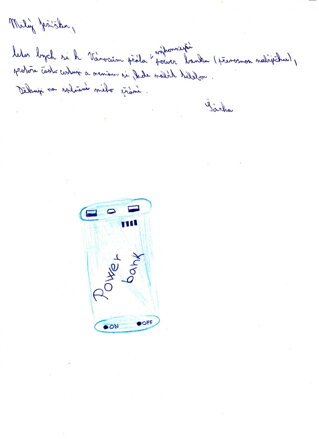 Milý Ježíšku,
letos bych si k Vánocům přála výkonnější power banku (přenosnou nabíječku),
protože často cestuji a nemám si kde nabít telefon.
Děkuji za splnění mého přání.
Šárka
Power
bank
ON OFF